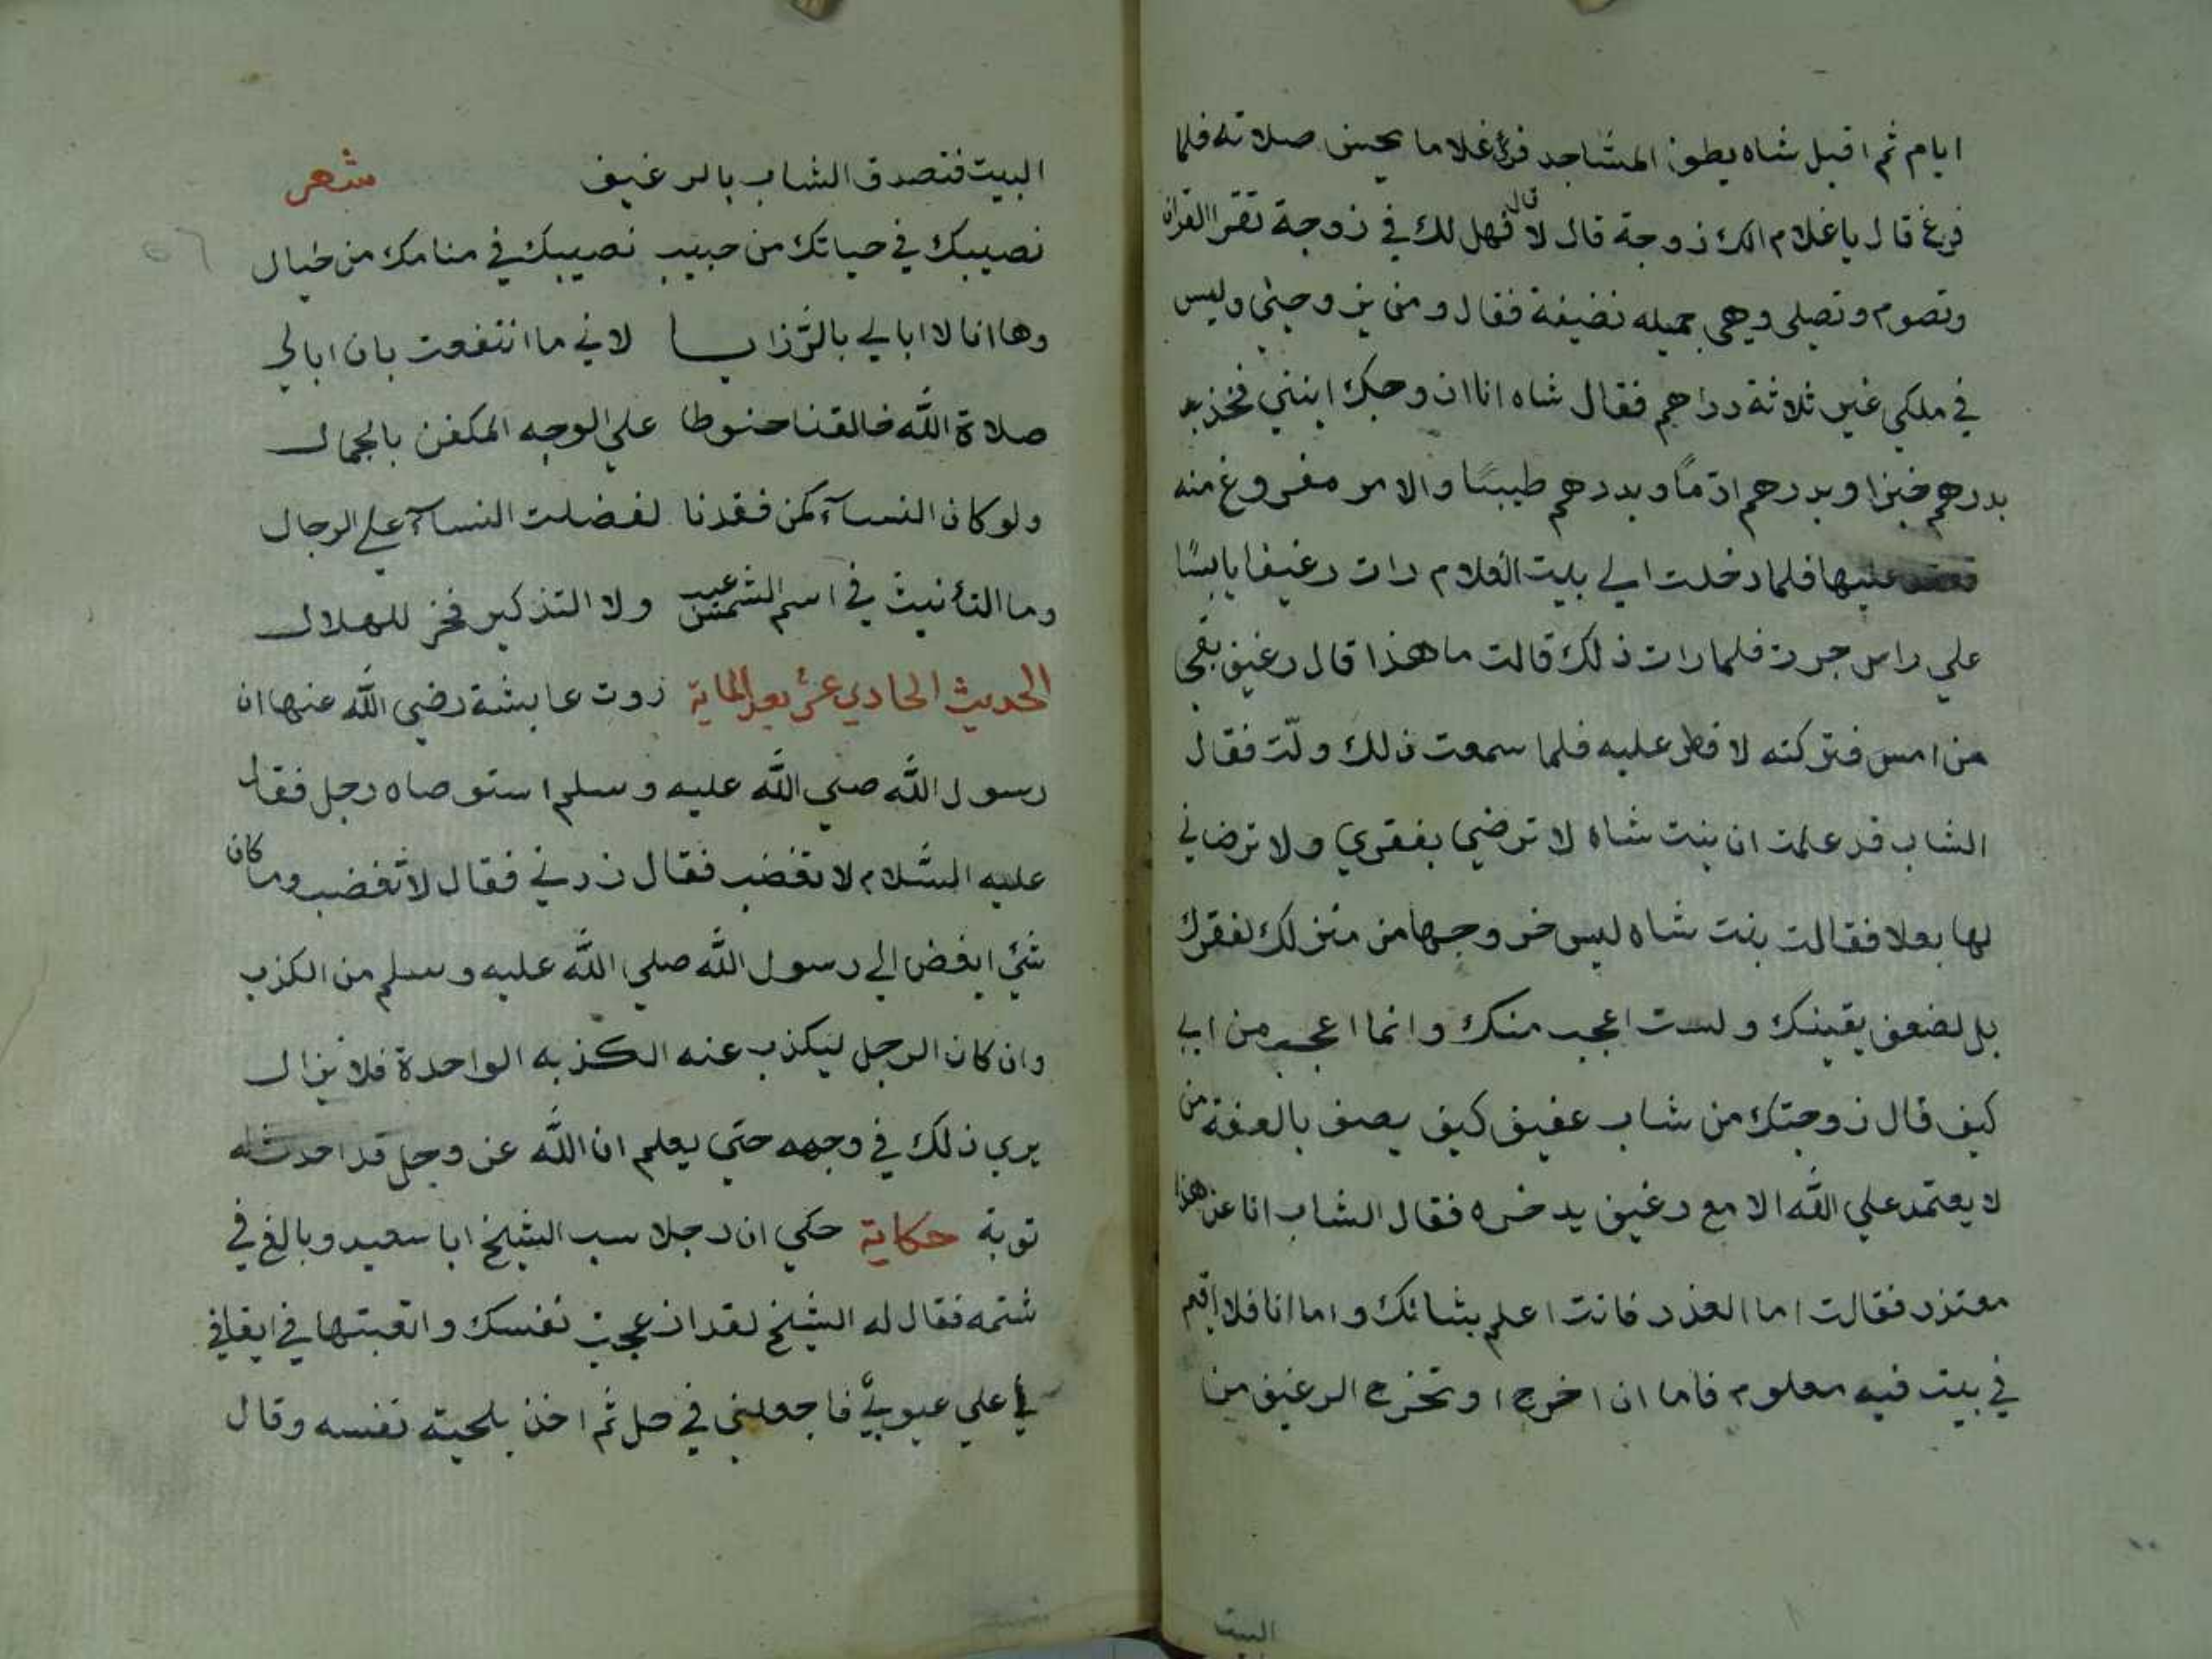 ايام ثم اقبل شاه يطوف المساجد فرئ غلاما يحسن صلاته فلما
فرغ قال يا غلام الك زوجة قال لا قال فهل لك في زوجة تقرا القران
وتصوم وتصلي وهي جميله نضيفة فقال ومن يزوجني وليس
في ملكي غير ثلاثة دراهم فقال شاه انا ازوجك ابنتي فخذ
بدرهم خبزا وبدرهم ادمًا وبدرهم طيبًا والامر مفروغ منه
فعقد عليها فلما دخلت الي بيت الغلام رات رغيفا يابسًا
علي راس جرت فلما رات ذلك قالت ما هذا قال رغيف بقي
من امس فتركته لافطر عليه فلما سمعت ذلك ولّت فقال
الشاب قد علمت ان بنت شاه لا ترضي بفقري ولا ترضاني
لها بعلا فقالت بنت شاه ليس خروجها من منزلك لفقرك
بل لضعف يقينك ولست اعجب منك وانما اعجب من ابي
كيف قال زوجتك من شاب عفيف كيف يصف بالعفة من
لا يعتمد علي الله الا مع رغيف يدخره فقال الشاب انا عن هذا
معتزر فقالت اما العذر فانت اعلم بشانك واما انا فلا اقيم
في بيت فيه معلوم فاما ان اخرج او تخرج الرغيف من
البيت
البيت فتصدق الشاب بالرغيف شعر
نصيبك في حياتك من حبيب نصيبك في منامك من خيال
وها انا لا ابالي بالرّزايا لاني ما انتفعت بان ابالي
صلاة الله خالقنا حنوطا علي الوجه المكفن بالجمال
ولو كان النسآء كمن فقدنا لفضلت النسآء علي الرجال
وما التأنيث في اسم الشمس عيب ولا التذكير فخر للهلال
الحديث الحادي عشر بعد الماية روت عايشة رضي الله عنها ان
رسول الله صلي الله عليه وسلم استوصاه رجل فقال
عليه السّلام لا تغضب فقال زدني فقال لا تغضب وما كان
شئ ابغض الي رسول الله صلي الله عليه وسلم من الكذب
وان كان الرجل ليكذب عنه الكذبه الواحدة فلا يزال
يري ذلك في وجهه حتي يعلم ان الله عز وجل قد احدث له
توبة حكاية حكي ان رجلا سب الشيخ ابا سعيد وبالغ في
شتمه فقال له الشيخ لقد ازعجت نفسك واتعبتها في ايقافي
علي عيوبي فاجعلني في حل ثم اخذ بلحية نفسه وقال